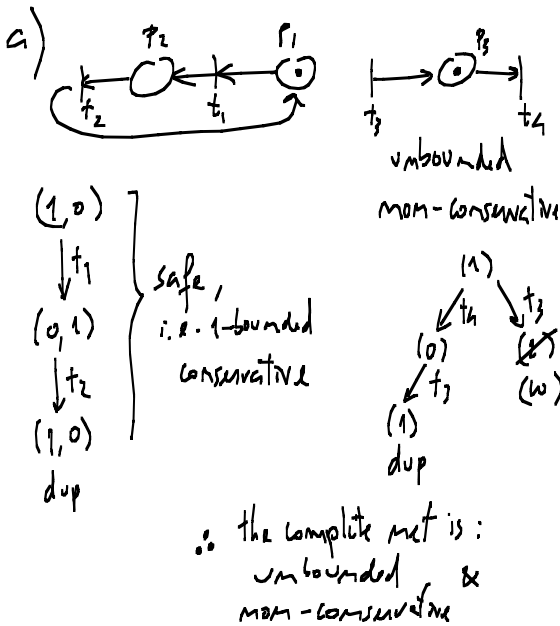 a)
p2 p1 p3
t2 t1 t3 t4
unbounded
non-conservative
(1,0)
t1
(0,1)
t2
(1,0)
dup
safe,
i.e. 1-bounded
conservative
(1)
t4 t3
(0) (2)
t3 (w)
(1)
dup
∴ the complete net is:
unbounded &
non-conservative